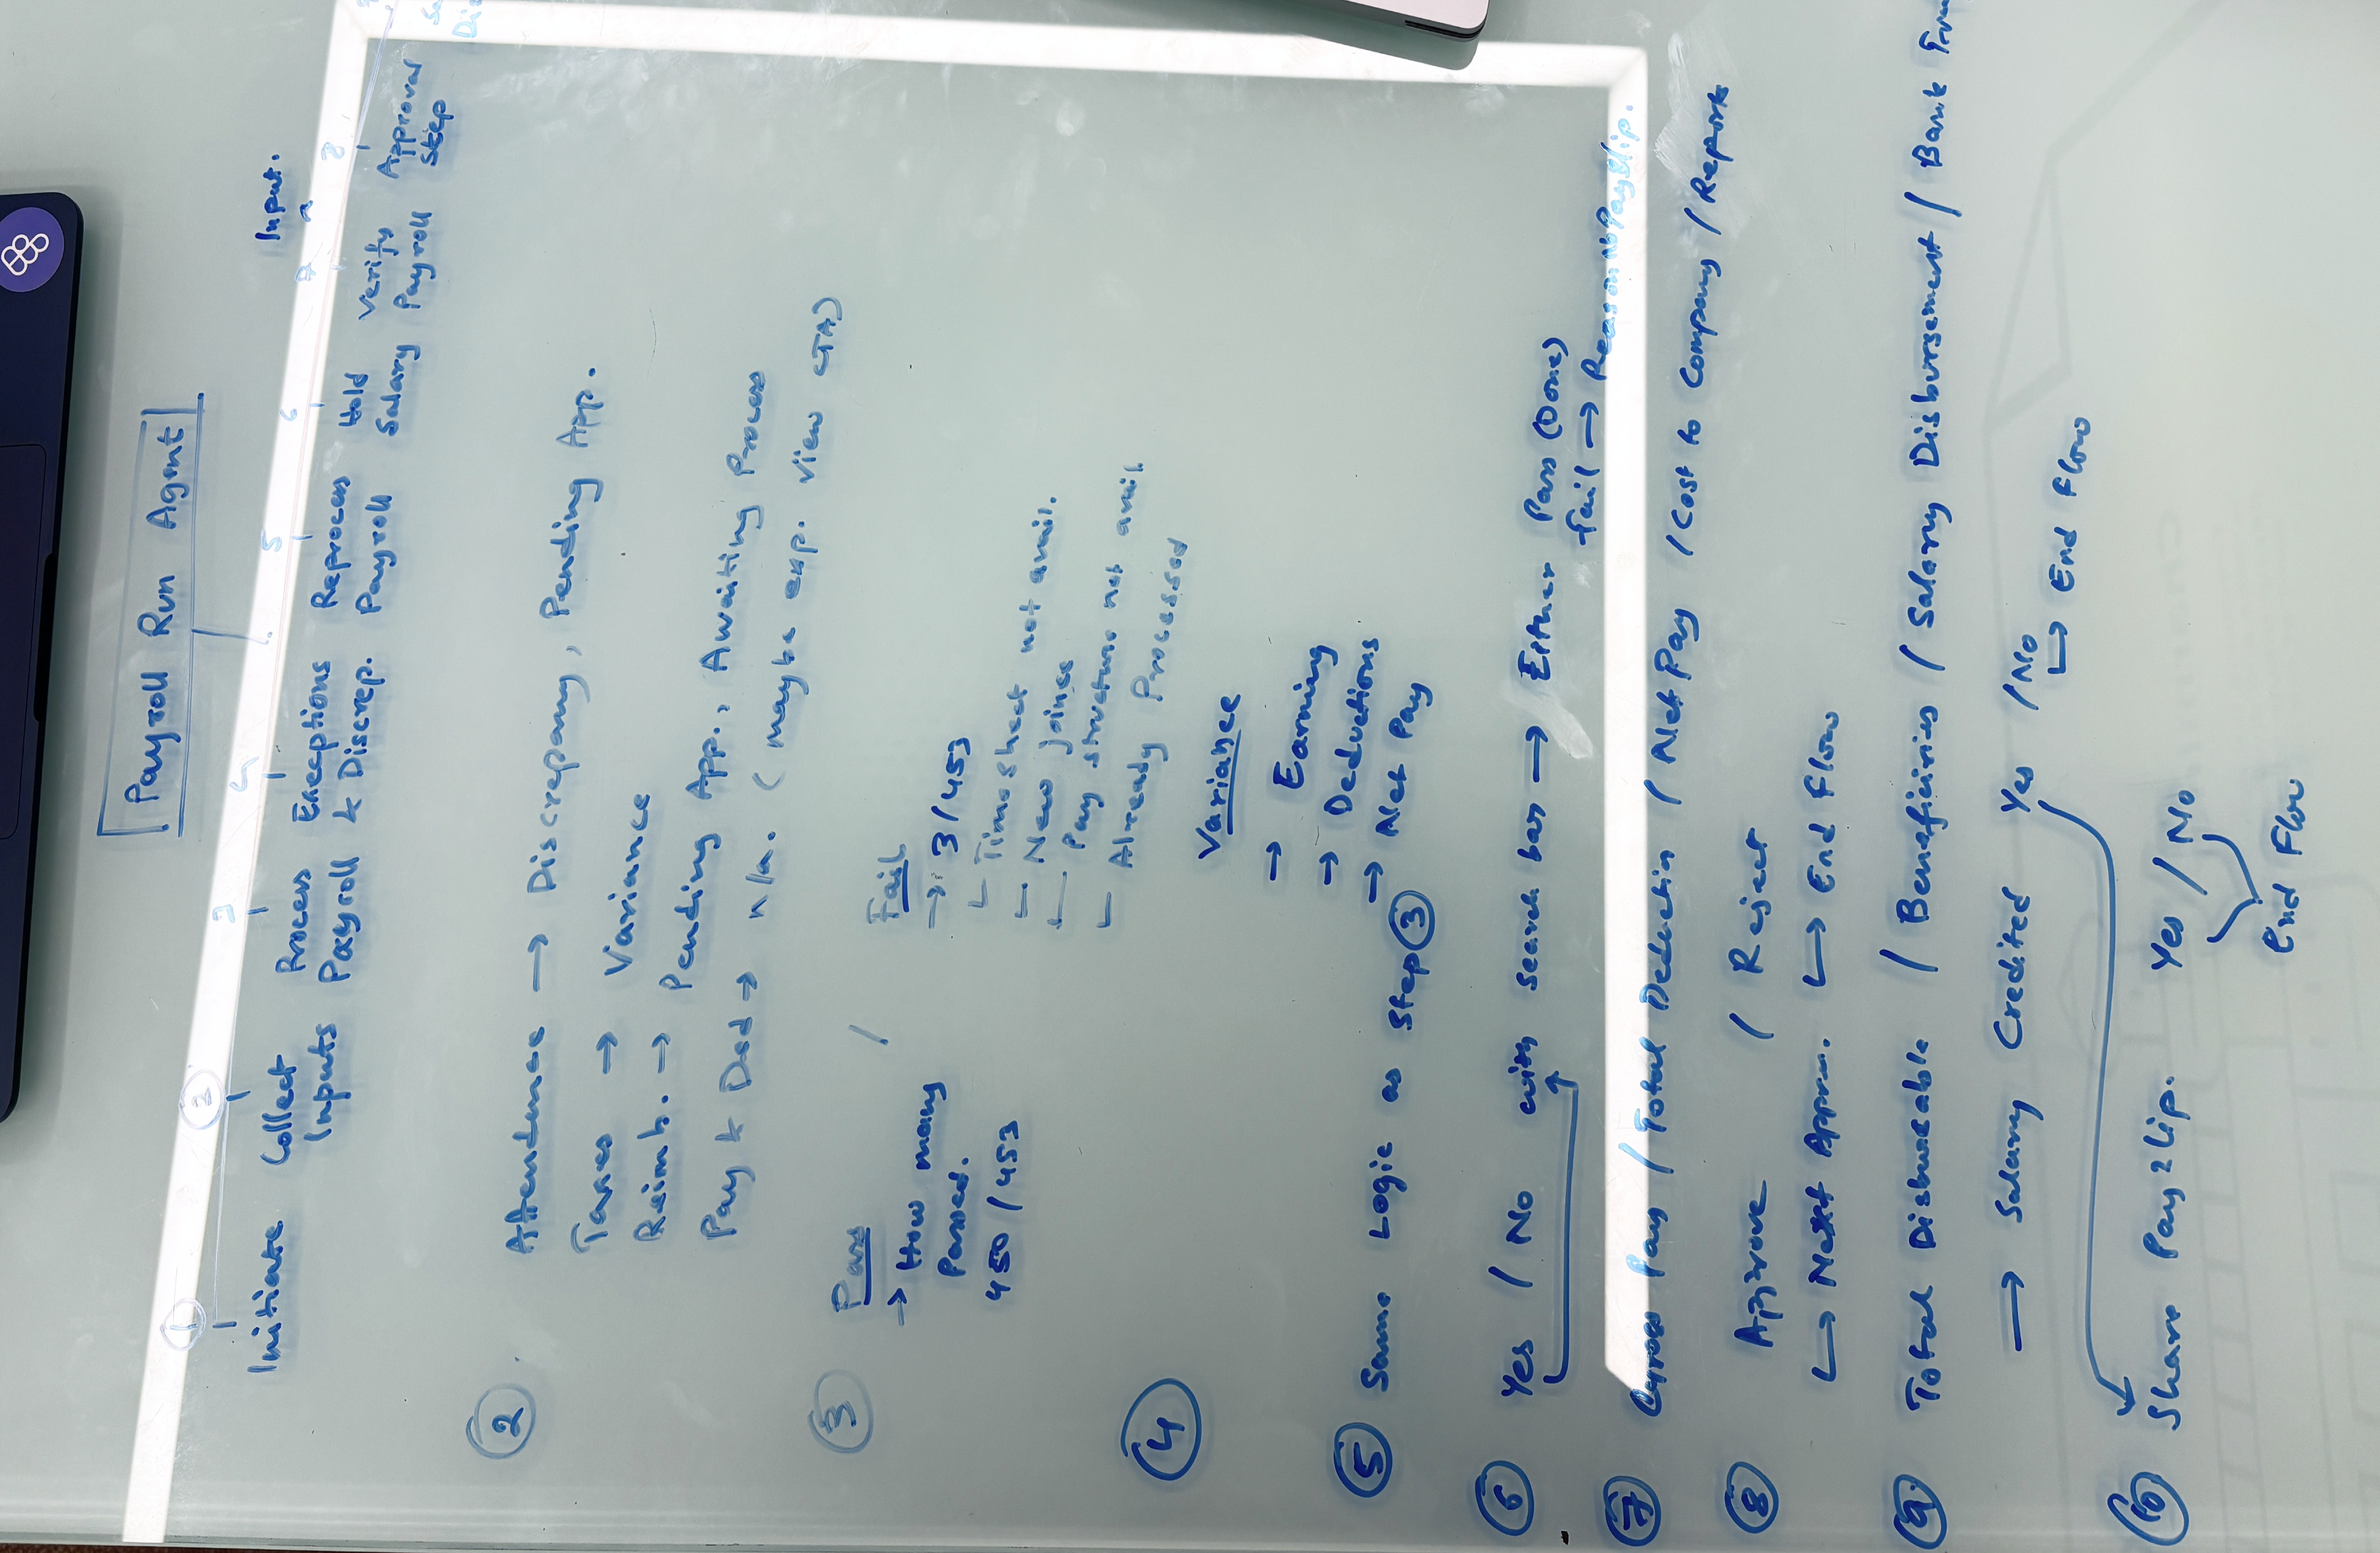 Payroll Run Agent
Input.
1 2 3 4 5 6 7 8
Initiate Collect Process Exceptions Reprocess Hold Verify Approval
Inputs Payroll & Discrep. Payroll Salary Payroll Step
2 Attendance → Discrepancy, Pending App.
Taxes → Variance
Reimb. → Pending App., Awaiting Process
Pay & Ded → n/a. (maybe exp. view CTA)
3 Pass / Fail
→ How many → 3/453
Passed. Timesheet not avail.
450/453 New joinee
Pay structure not avail
Already Processed
4 Variance
→ Earning
→ Deductions
→ Net Pay
5 Same Logic as Step 3
6 Yes / No with search bar → Either Pass (Done)
Fail → Reason No PaySlip.
7 Gross Pay / Total Deduction / Net Pay / Cost to Company / Report
8 Approve / Reject
Next Appro. End Flow
9 Total Disburseable / Beneficiries / Salary Disbursement / Bank
→ Salary Credited Yes / No
→ End Flow
10 Share Payslip. Yes / No
End Flow